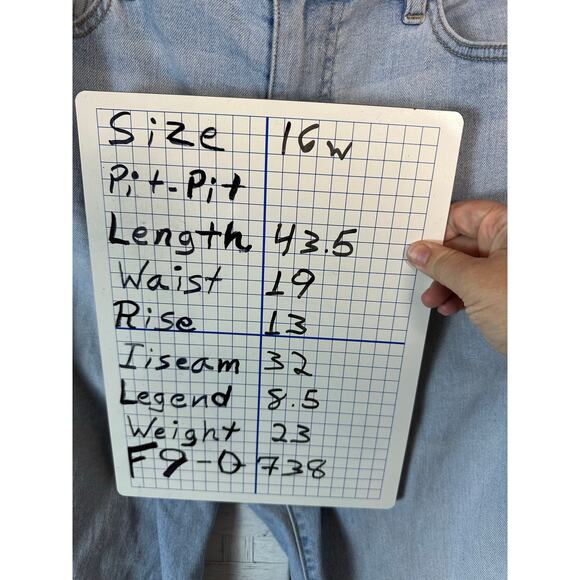 Size 16w
Pit-Pit
Length 43.5
Waist 19
Rise 13
Iiseam 32
Legend 8.5
Weight 23
F9-0 738